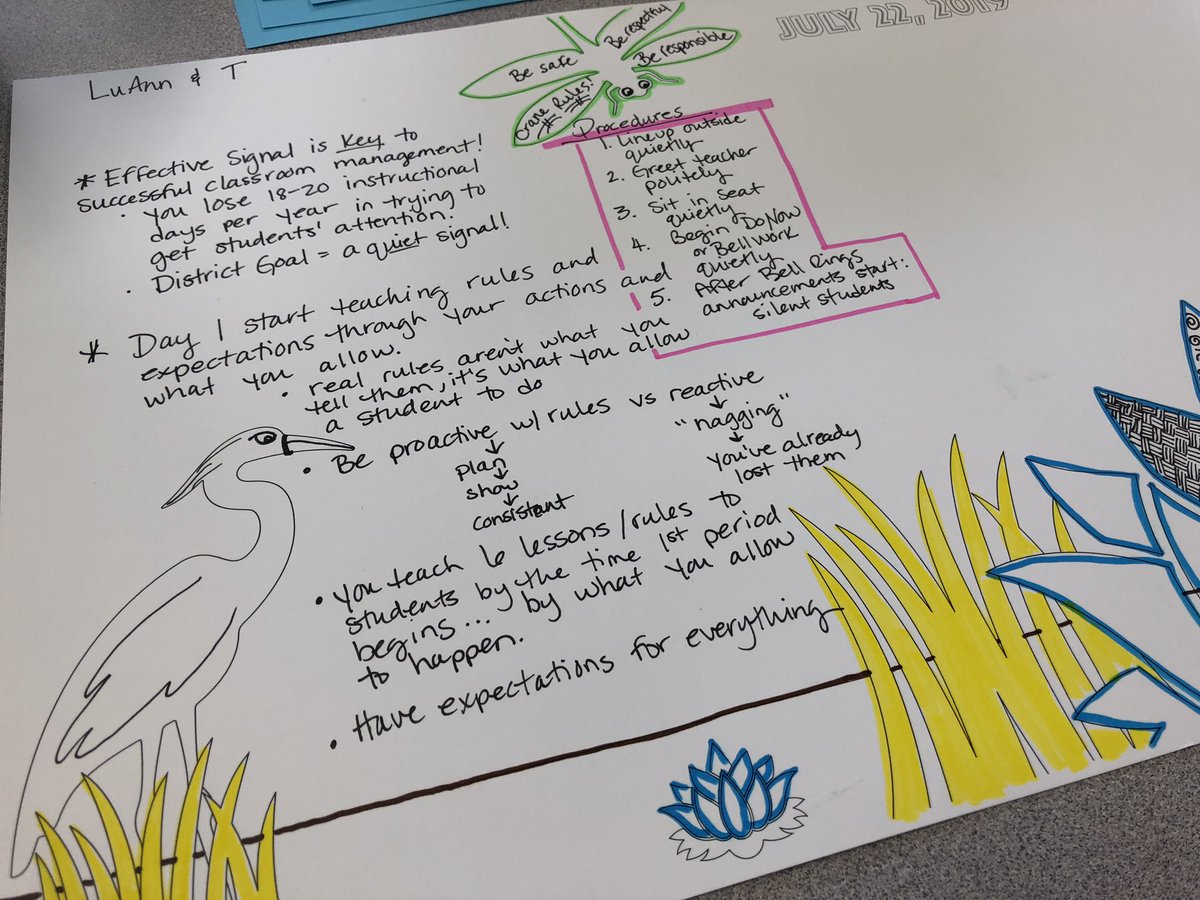 JULY 22, 2019
LuAnn & T
Be safe
Be respectful
Be responsible
Crane Rules!
Procedures
1. Lineup outside
quietly
2. Greet teacher
politely
3. Sit in seat
quietly
4. Begin DoNow
or Bellwork
quietly
5. After Bell Rings
announcements start:
silent students
* Effective Signal is Key to
successful classroom management!
• You lose 18-20 instructional
days per year in trying to
get students' attention.
• District Goal = a quiet signal!
* Day 1 start teaching rules and
expectations through your actions and
what you allow.
• real rules aren't what you
tell them, it's what you allow
a student to do
• Be proactive w/ rules vs reactive
↓
plan
↓
show
↓
consistent
↓
"nagging"
↓
you've already
lost them
• You teach 6 lessons/rules to
students by the time 1st period
begins... by what you allow
to happen.
• Have expectations for everything